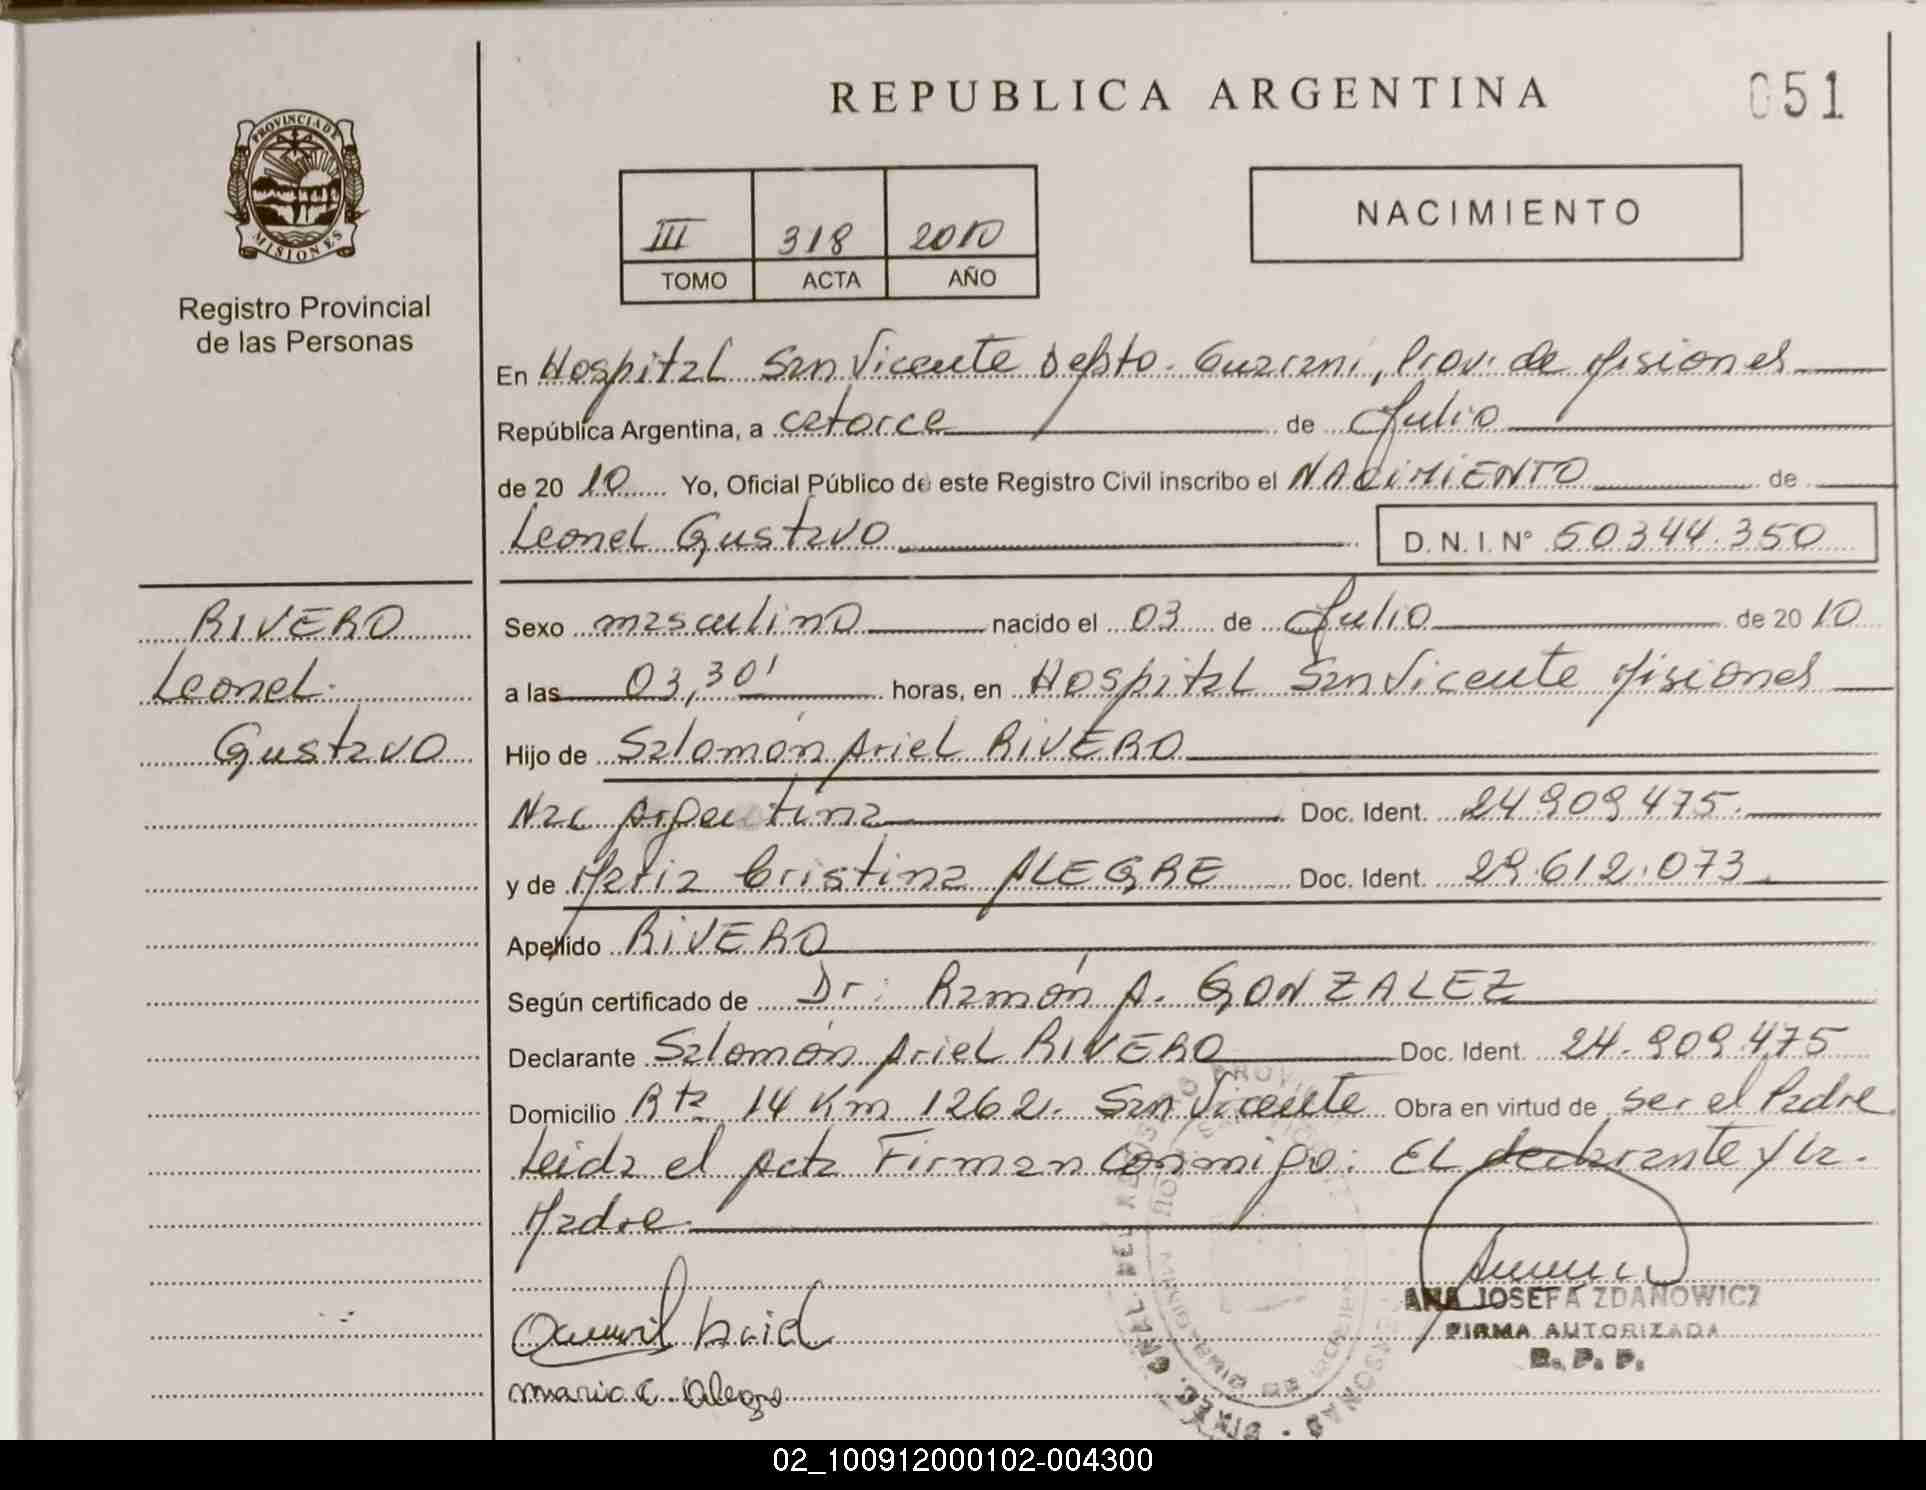 REPUBLICA ARGENTINA
051
PROVINCIA DE
MISIONES
Registro Provincial
de las Personas
III 318 2010
TOMO ACTA AÑO
NACIMIENTO
En Hospital San Vicente Depto. Guarani, Prov. de Misiones
República Argentina, a catorce de Julio
de 20 10 Yo, Oficial Público de este Registro Civil inscribo el NACIMIENTO de
Leonel Gustavo D. N. I. N° 50344.350
RIVERO
Leonel
Gustavo
Sexo masculino nacido el 03 de Julio de 20 10
a las 03,30' horas, en Hospital San Vicente Misiones
Hijo de Salomón Ariel RIVERO
Nac Argentina Doc. Ident. 24909475.
y de Maria Cristina ALEGRE Doc. Ident. 29.612.073
Apellido RIVERO
Según certificado de Dr. Ramón A. GONZALEZ
Declarante Salomón Ariel RIVERO Doc. Ident. 24.909.475
Domicilio Rta 14 Km 1262. San Vicente Obra en virtud de ser el Padre
Leida el Acta Firman conmigo: El declarante y la
Madre.
ANA JOSEFA ZDANOWICZ
FIRMA AUTORIZADA
R. P. P.
Maria C. Alegre
02_100912000102-004300